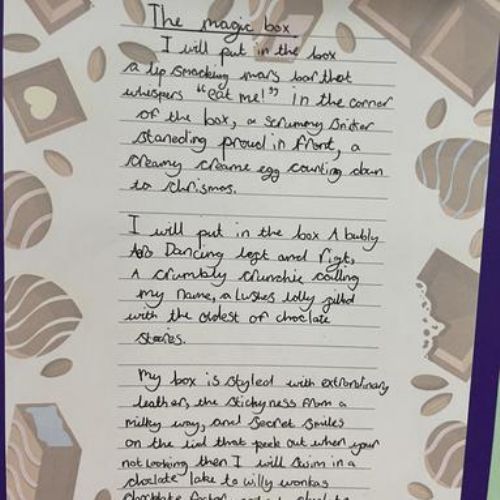 The magic box
I will put in the box
a lip smacking mars bar that
whispers "eat me!" in the corner
of the box, a scrummy Snicker
staneding proud in front, a
creamy creame egg counting down
to chrismos.
I will put in the box A bubly
Dancing left and rigt,
A crumbly crunchie calling
my name, a lushes lolly filld
with the oldest of choclate
stories.
My box is styled with extrordinary
leather, the stickyness from a
milky way, and secret smiles
on the lid that peek out when your
not looking then I will swim in a
choclate lake to willy wonkas